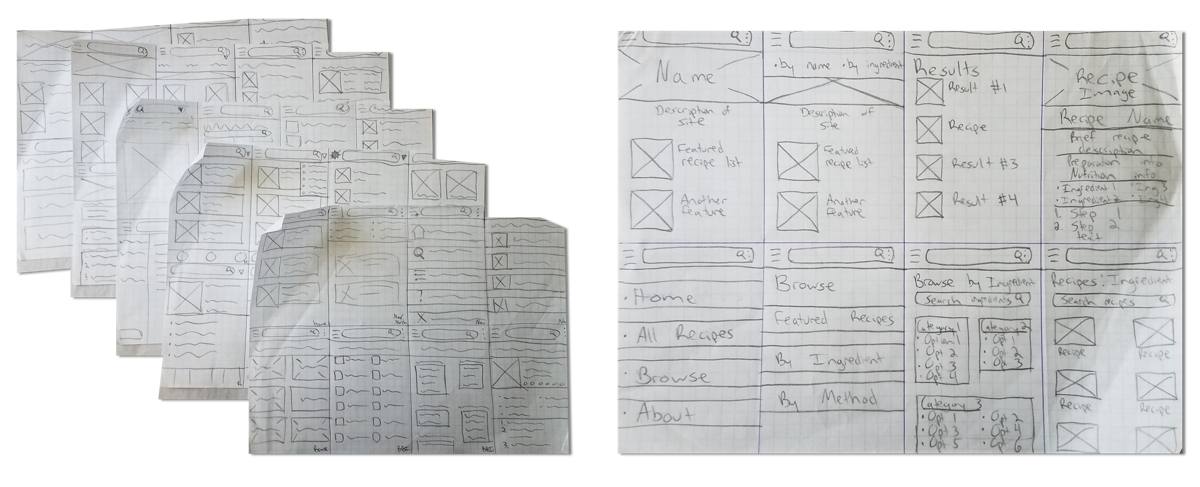 Home
Nav
Name
Description of
site
Featured
recipe list
Another
Feature
• by name • by ingredient
Description of
site
Featued
recipe list
Another
Feature
Results
Result #1
Recipe
Result #3
Result #4
Recipe
Image
Recipe Name
Brief recipe
description
Preparation info
Nutrition info
• Ingredient 1
1. Step 1
2. Step 2
text
• Home
• All Recipes
• Browse
• About
Browse
Featured Recipes
By Ingredient
By Method
Browse by Ingredient
Search ingredients
Category 1
• Option 1
• Opt 2
• Opt 3
• Opt 4
Category 2
• Opt 1
• Opt 2
• Opt 3
Category 3
• Opt 1 • Opt 2
• Opt 3 • Opt 4
• Opt 5 • Opt 6
Recipes: Ingredient
Search recipes
Recipe Recipe
Recipe Recipe